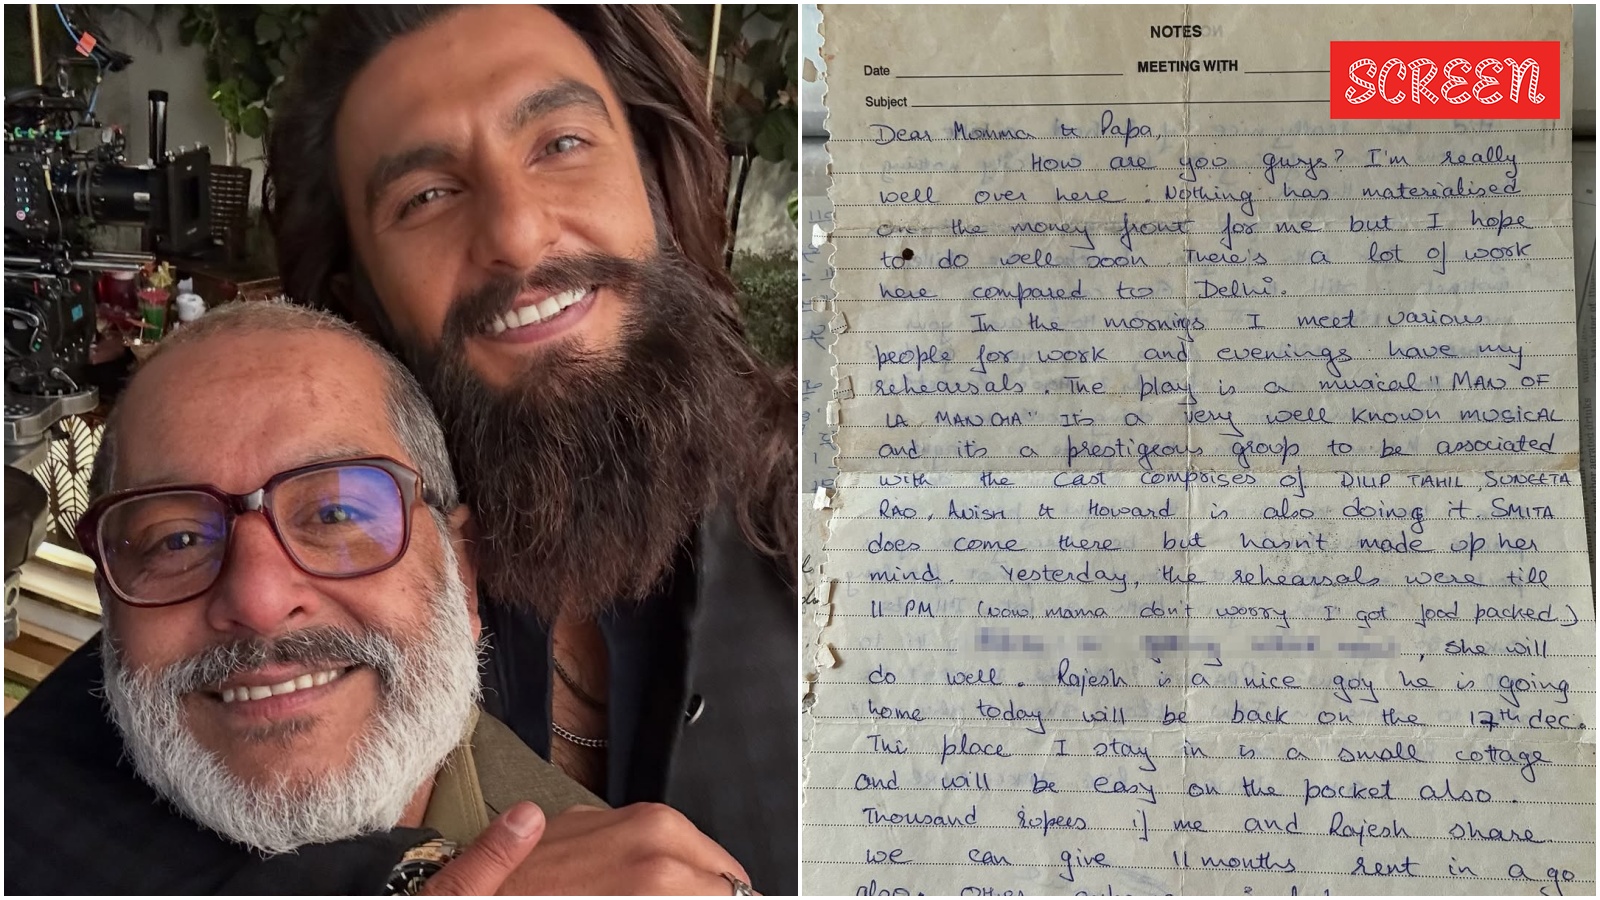 NOTES
SCREEN
Date MEETING WITH
Subject
Dear Momma & Papa,
How are you guys? I'm really
well over here. Nothing has materialised
on the money front for me but I hope
to do well soon There's a lot of work
here compared to Delhi.
In the mornings I meet various
people for work and evenings have my
rehearsals. The play is a musical "MAN OF
LA MANCHA" ITS a very well known musical
and its a prestigeous group to be associated
with the Cast comprises of DILIP TAHIL, SUNEETA
RAO, Avish & Howard is also doing it. SMITA
does come there but hasn't made up her
mind. Yesterday, the rehearsals were till
11 PM (wow mama don't worry I got food packed)
, she will
do well. Rajesh is a nice guy he is going
home today will be back on the 17th dec.
The place I stay in is a small cottage
and will be easy on the pocket also.
Thousand rupees if me and Rajesh share
we can give 11 months rent in a go
also. Other